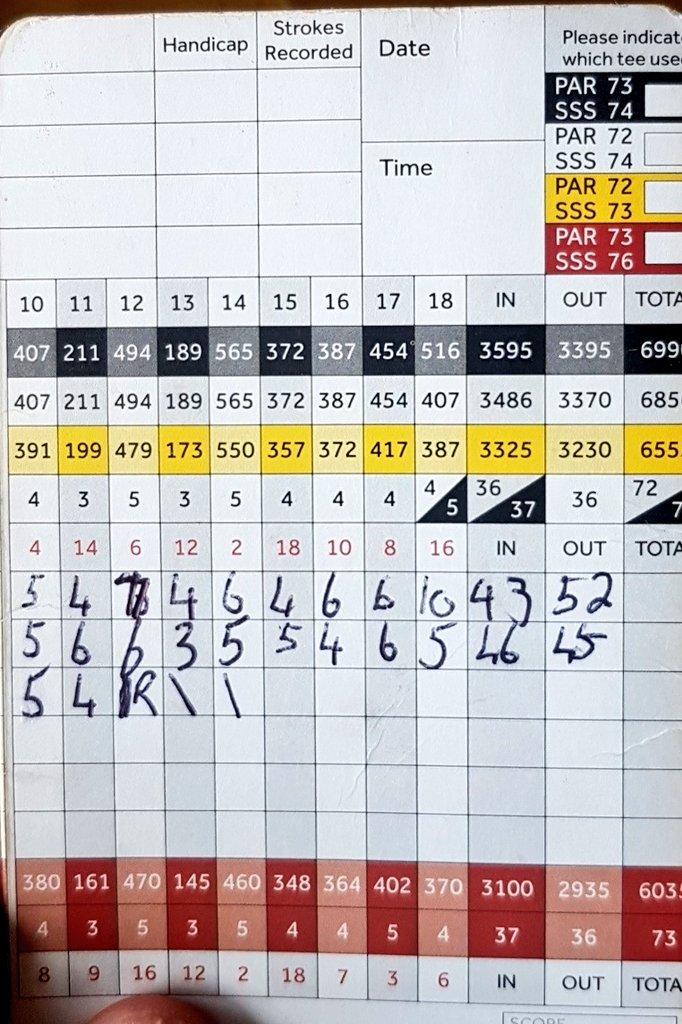 Handicap Strokes Recorded Date Please indicat
which tee use
PAR 73
SSS 74
PAR 72
SSS 74
Time
PAR 72
SSS 73
PAR 73
SSS 76
10 11 12 13 14 15 16 17 18 IN OUT TOTA
407 211 494 189 565 372 387 454 516 3595 3395 699
407 211 494 189 565 372 387 454 407 3486 3370 685
391 199 479 173 550 357 372 417 387 3325 3230 655
4 3 5 3 5 4 4 4 4 5 36 37 36 72 7
4 14 6 12 2 18 10 8 16 IN OUT TOTA
5 4 4 6 4 6 6 10 43 52
5 6 6 3 5 5 4 6 5 46 45
5 4 R \ \
380 161 470 145 460 348 364 402 370 3100 2935 603
4 3 5 3 5 4 4 5 4 37 36 73
8 9 16 12 2 18 7 3 6 IN OUT TOTA
SCORE